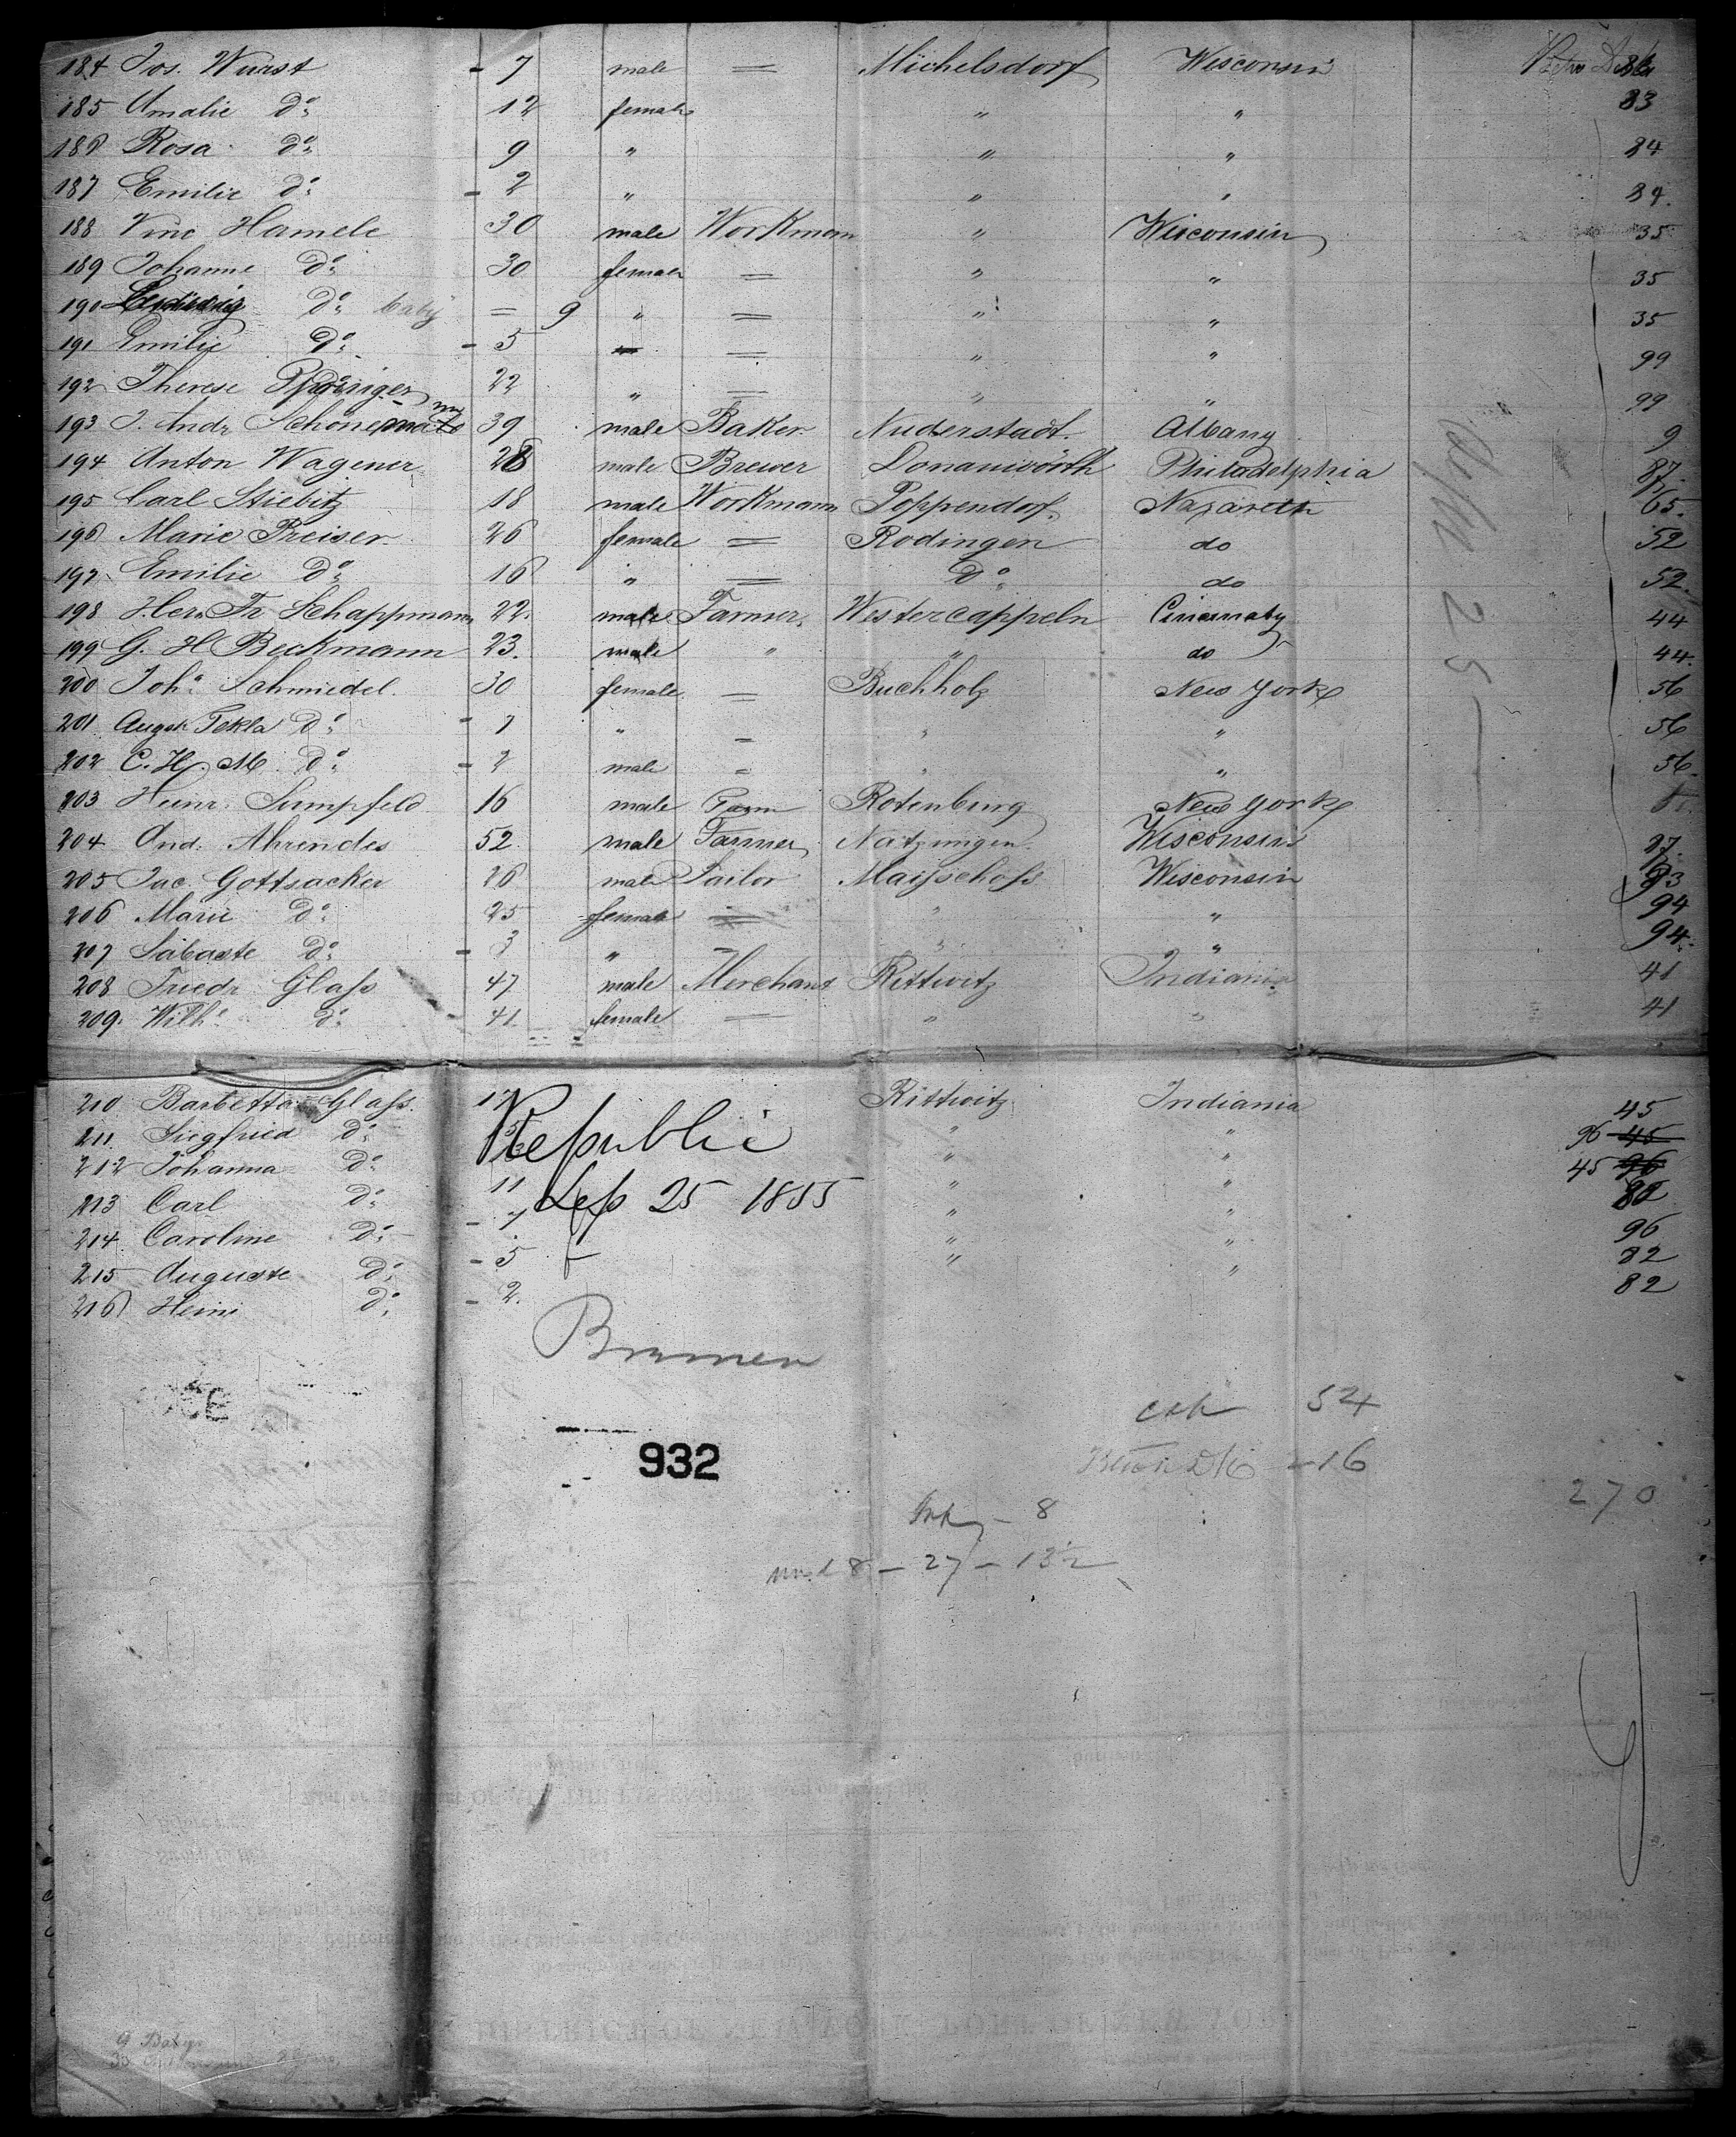 184 Jos. Wurst - 7 male = Michelsdorf Wisconsin
185 Amalie Do. 12 female " " 83
186 Rosa Do. 9 " " " 84
187 Emilie Do. - 2 " " " 84.
188 Vinc Hamele 30 male Workman " Wisconsin 35
189 Johanne Do. 30 female = " " 35
190 Do. baby = 9 " = " " 35
191 Emilie Do. - 5 = " " 99
192 Therese 22 " = " " 99
193 J. Andr 39 male Baker Nuderstadt. Albany 9
194 Anton Wagener 28 male Brewer Donauwörth Philadelphia 87.
195 Carl Stiebitz 18 male Workmann Poppendorf. Nazareth 65.
196 Marie Preiser 26 female = Rodingen do 52
197. Emilie Do. 16 " = Do. do 52.
198 Herm Fr Schappmann 22. male Farmer. Westercappeln Cincinnaty 44
199 G. H Beckmann 23. male " " do 44.
200 Joh. Schmiedel. 30 female. = Buchholz New York 56
201 Augste Tekla Do. - 7 " = " " 56
202 C. H. M. Do. - 2 male = " " 56.
203 Heinr. Sumpfeld 16 male Farm Rotenburg New York
204 And. Ahrendes 52. male Farmer Natzungen. Wisconsin 27.
205 Jac Gottsacker 26 male Tailor Maijschoss Wisconsin 93
206 Marie Do. 25 female = " " 94
207 Sabaste Do. - 3 " - " " 94.
208 Friedr Glass 47 male Merchant Rittwitz Indiania 41
209. Wilh. do. 41. female = " " 41
210 Barbetta Glass. Rittwitz Indiania 45
211 Siegfried Do. " " 96 45
212 Johanna Do. " " 45 96
213 Carl Do. 11 " " 82
214. Caroline Do. - 7 " " 96
215 Auguste Do. - 5 " " 82
216 Heini do. - 2. " " 82
Republic
Sep 25 1855
Bremen
54
932
- 16
270
- 8
8 - 27 - 13½
9 Babys